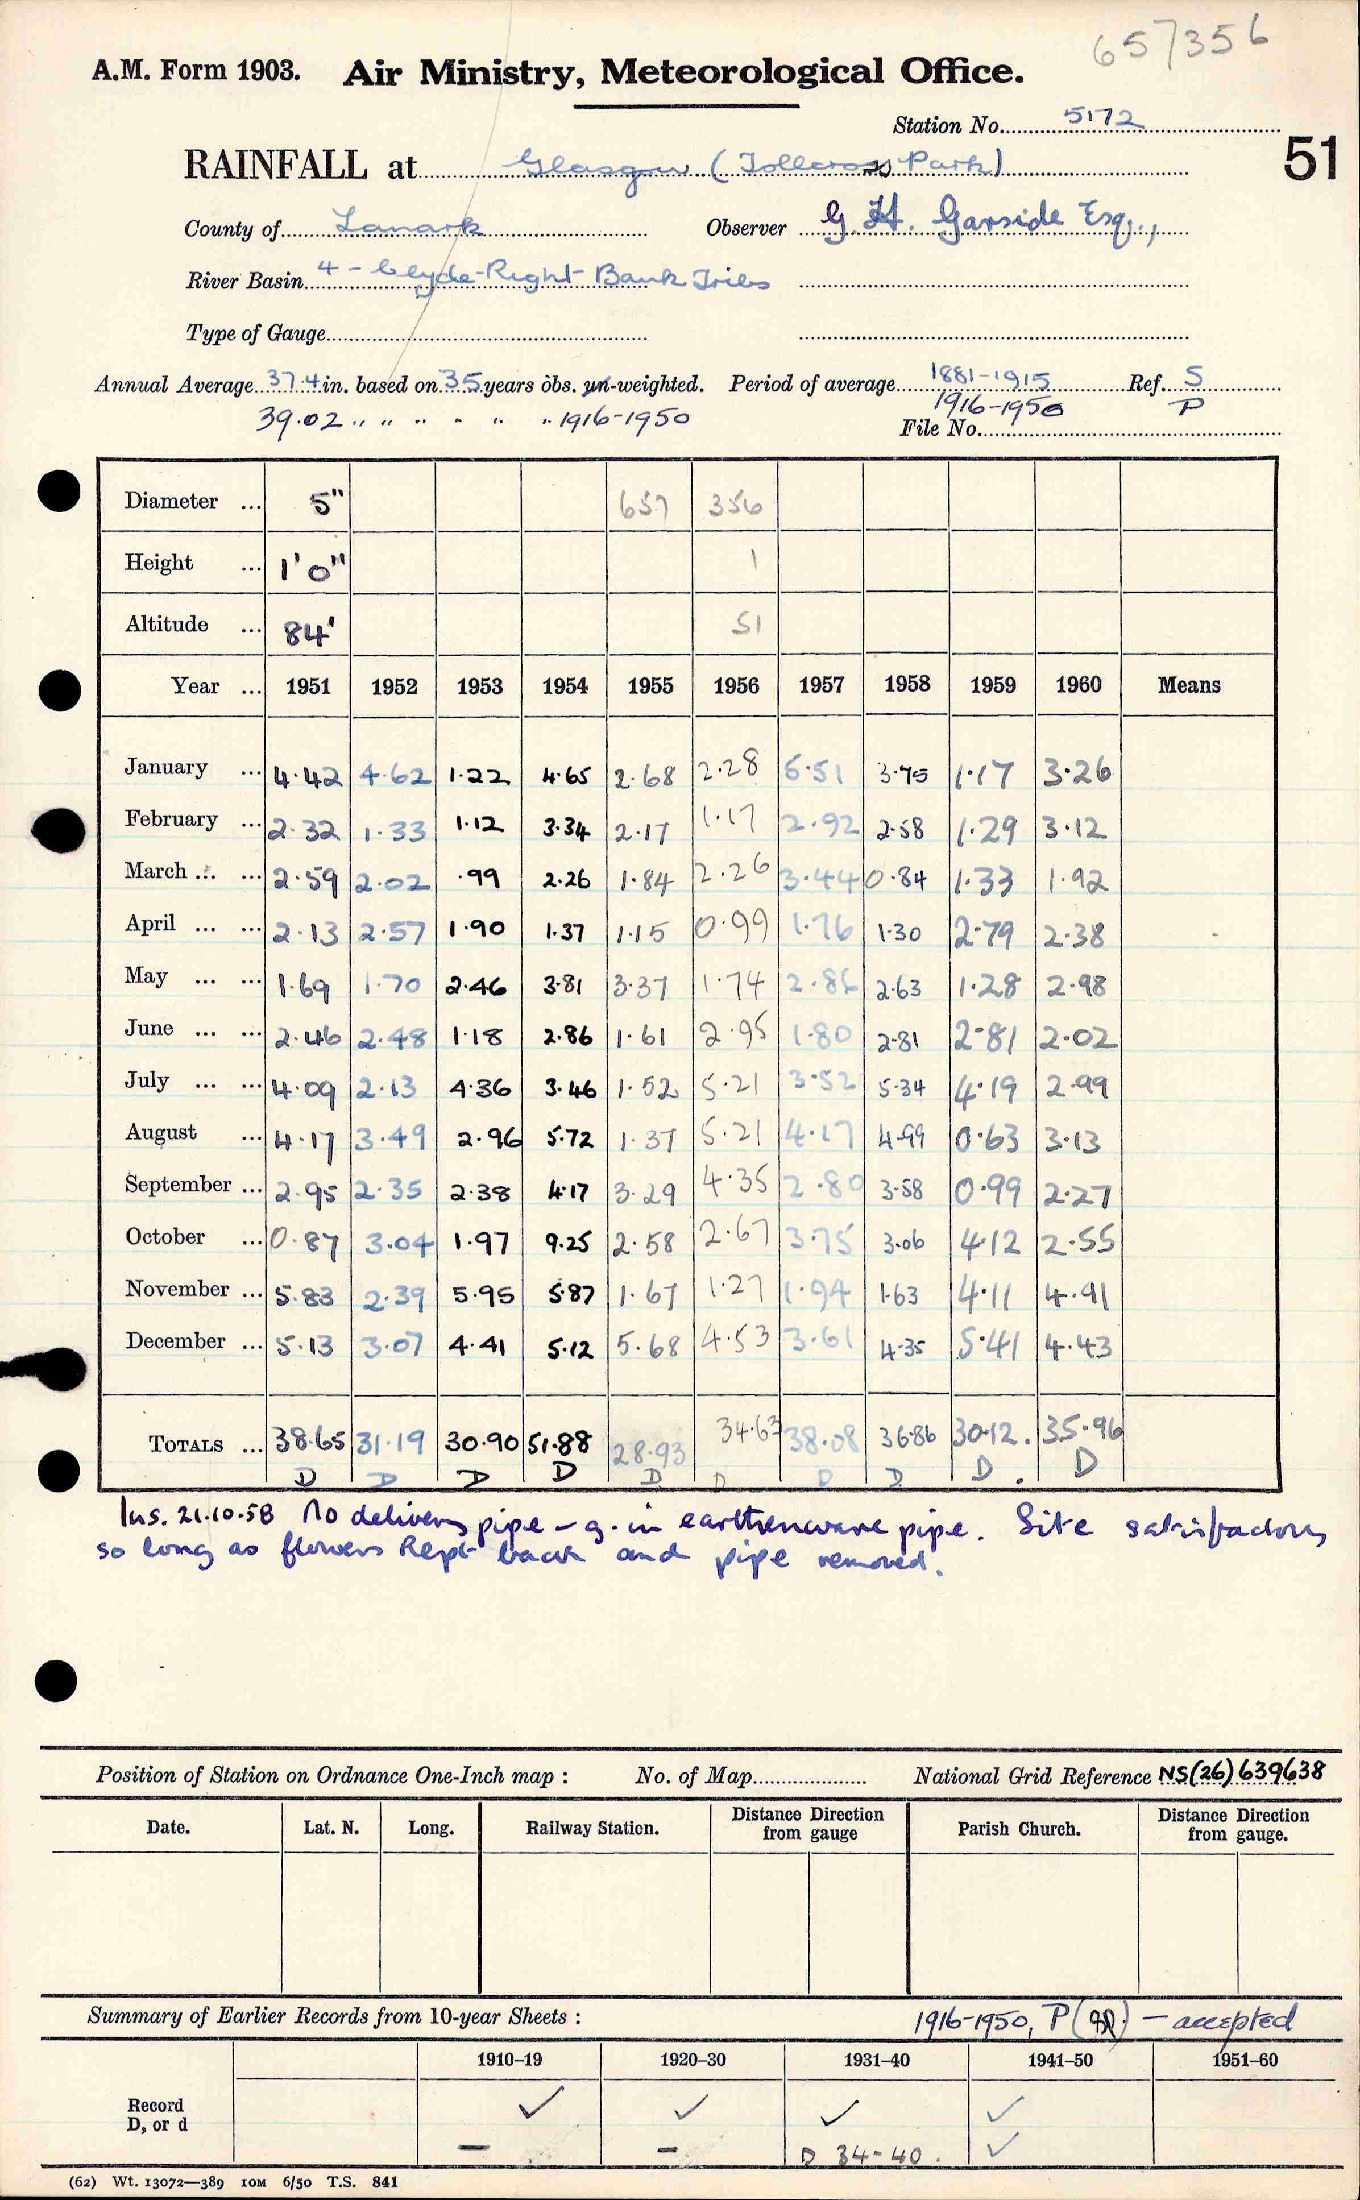 657356
A.M. Form 1903. Air Ministry, Meteorological Office.
Station No. 5172
51
RAINFALL at Glasgow (Tollcross Park)
County of Lanark Observer G. H. Garside Esq.,
River Basin 4 - Clyde-Right Bank Tribs
Type of Gauge
Annual Average 37.4 in. based on 35 years obs. un-weighted. Period of average 1881-1915 Ref. S
39.02 " " " " " " 1916-1950 1916-1950 P
File No.
Diameter ... 5" 657 356
Height ... 1' 0" 1
Altitude ... 84' 51
Year ... 1951 1952 1953 1954 1955 1956 1957 1958 1959 1960 Means
January ... 4.42 4.62 1.22 4.65 2.68 2.28 5.51 3.75 1.17 3.26
February ... 2.32 1.33 1.12 3.34 2.17 1.17 2.92 2.58 1.29 3.12
March ... ... 2.59 2.02 .99 2.26 1.84 2.26 3.44 0.84 1.33 1.92
April ... ... 2.13 2.57 1.90 1.37 1.15 0.99 1.76 1.30 2.79 2.38
May ... ... 1.69 1.70 2.46 3.81 3.37 1.74 2.86 2.63 1.28 2.98
June ... ... 2.46 2.48 1.18 2.86 1.61 2.95 1.80 2.81 2.81 2.02
July ... ... 4.09 2.13 4.36 3.46 1.52 5.21 3.52 5.34 4.19 2.99
August ... 4.17 3.49 2.96 5.72 1.37 5.21 4.17 4.99 0.63 3.13
September ... 2.95 2.35 2.38 4.17 3.29 4.35 2.80 3.58 0.99 2.27
October ... 0.87 3.04 1.97 9.25 2.58 2.67 3.75 3.06 4.12 2.55
November ... 5.83 2.39 5.95 5.87 1.67 1.27 1.94 1.63 4.11 4.91
December ... 5.13 3.07 4.41 5.12 5.68 4.53 3.61 4.35 5.41 4.43
TOTALS ... 38.65 31.19 30.90 51.88 28.93 34.63 38.08 36.86 30.12. 35.96
D D D D D D D D D. D
Ins. 21.10.58 No delivery pipe - g. in earthenware pipe. Site satisfactory
so long as flowers kept back and pipe removed.
Position of Station on Ordnance One-Inch map : No. of Map National Grid Reference NS(26)639638
Date. Lat. N. Long. Railway Station. Distance Direction from gauge Parish Church. Distance Direction from gauge.
Summary of Earlier Records from 10-year Sheets : 1916-1950, P - accepted
1910–19 1920–30 1931–40 1941–50 1951–60
Record ✓ ✓ ✓ ✓
D, or d – – D 34-40. ✓
(62) Wt. 13072—389 10M 6/50 T.S. 841